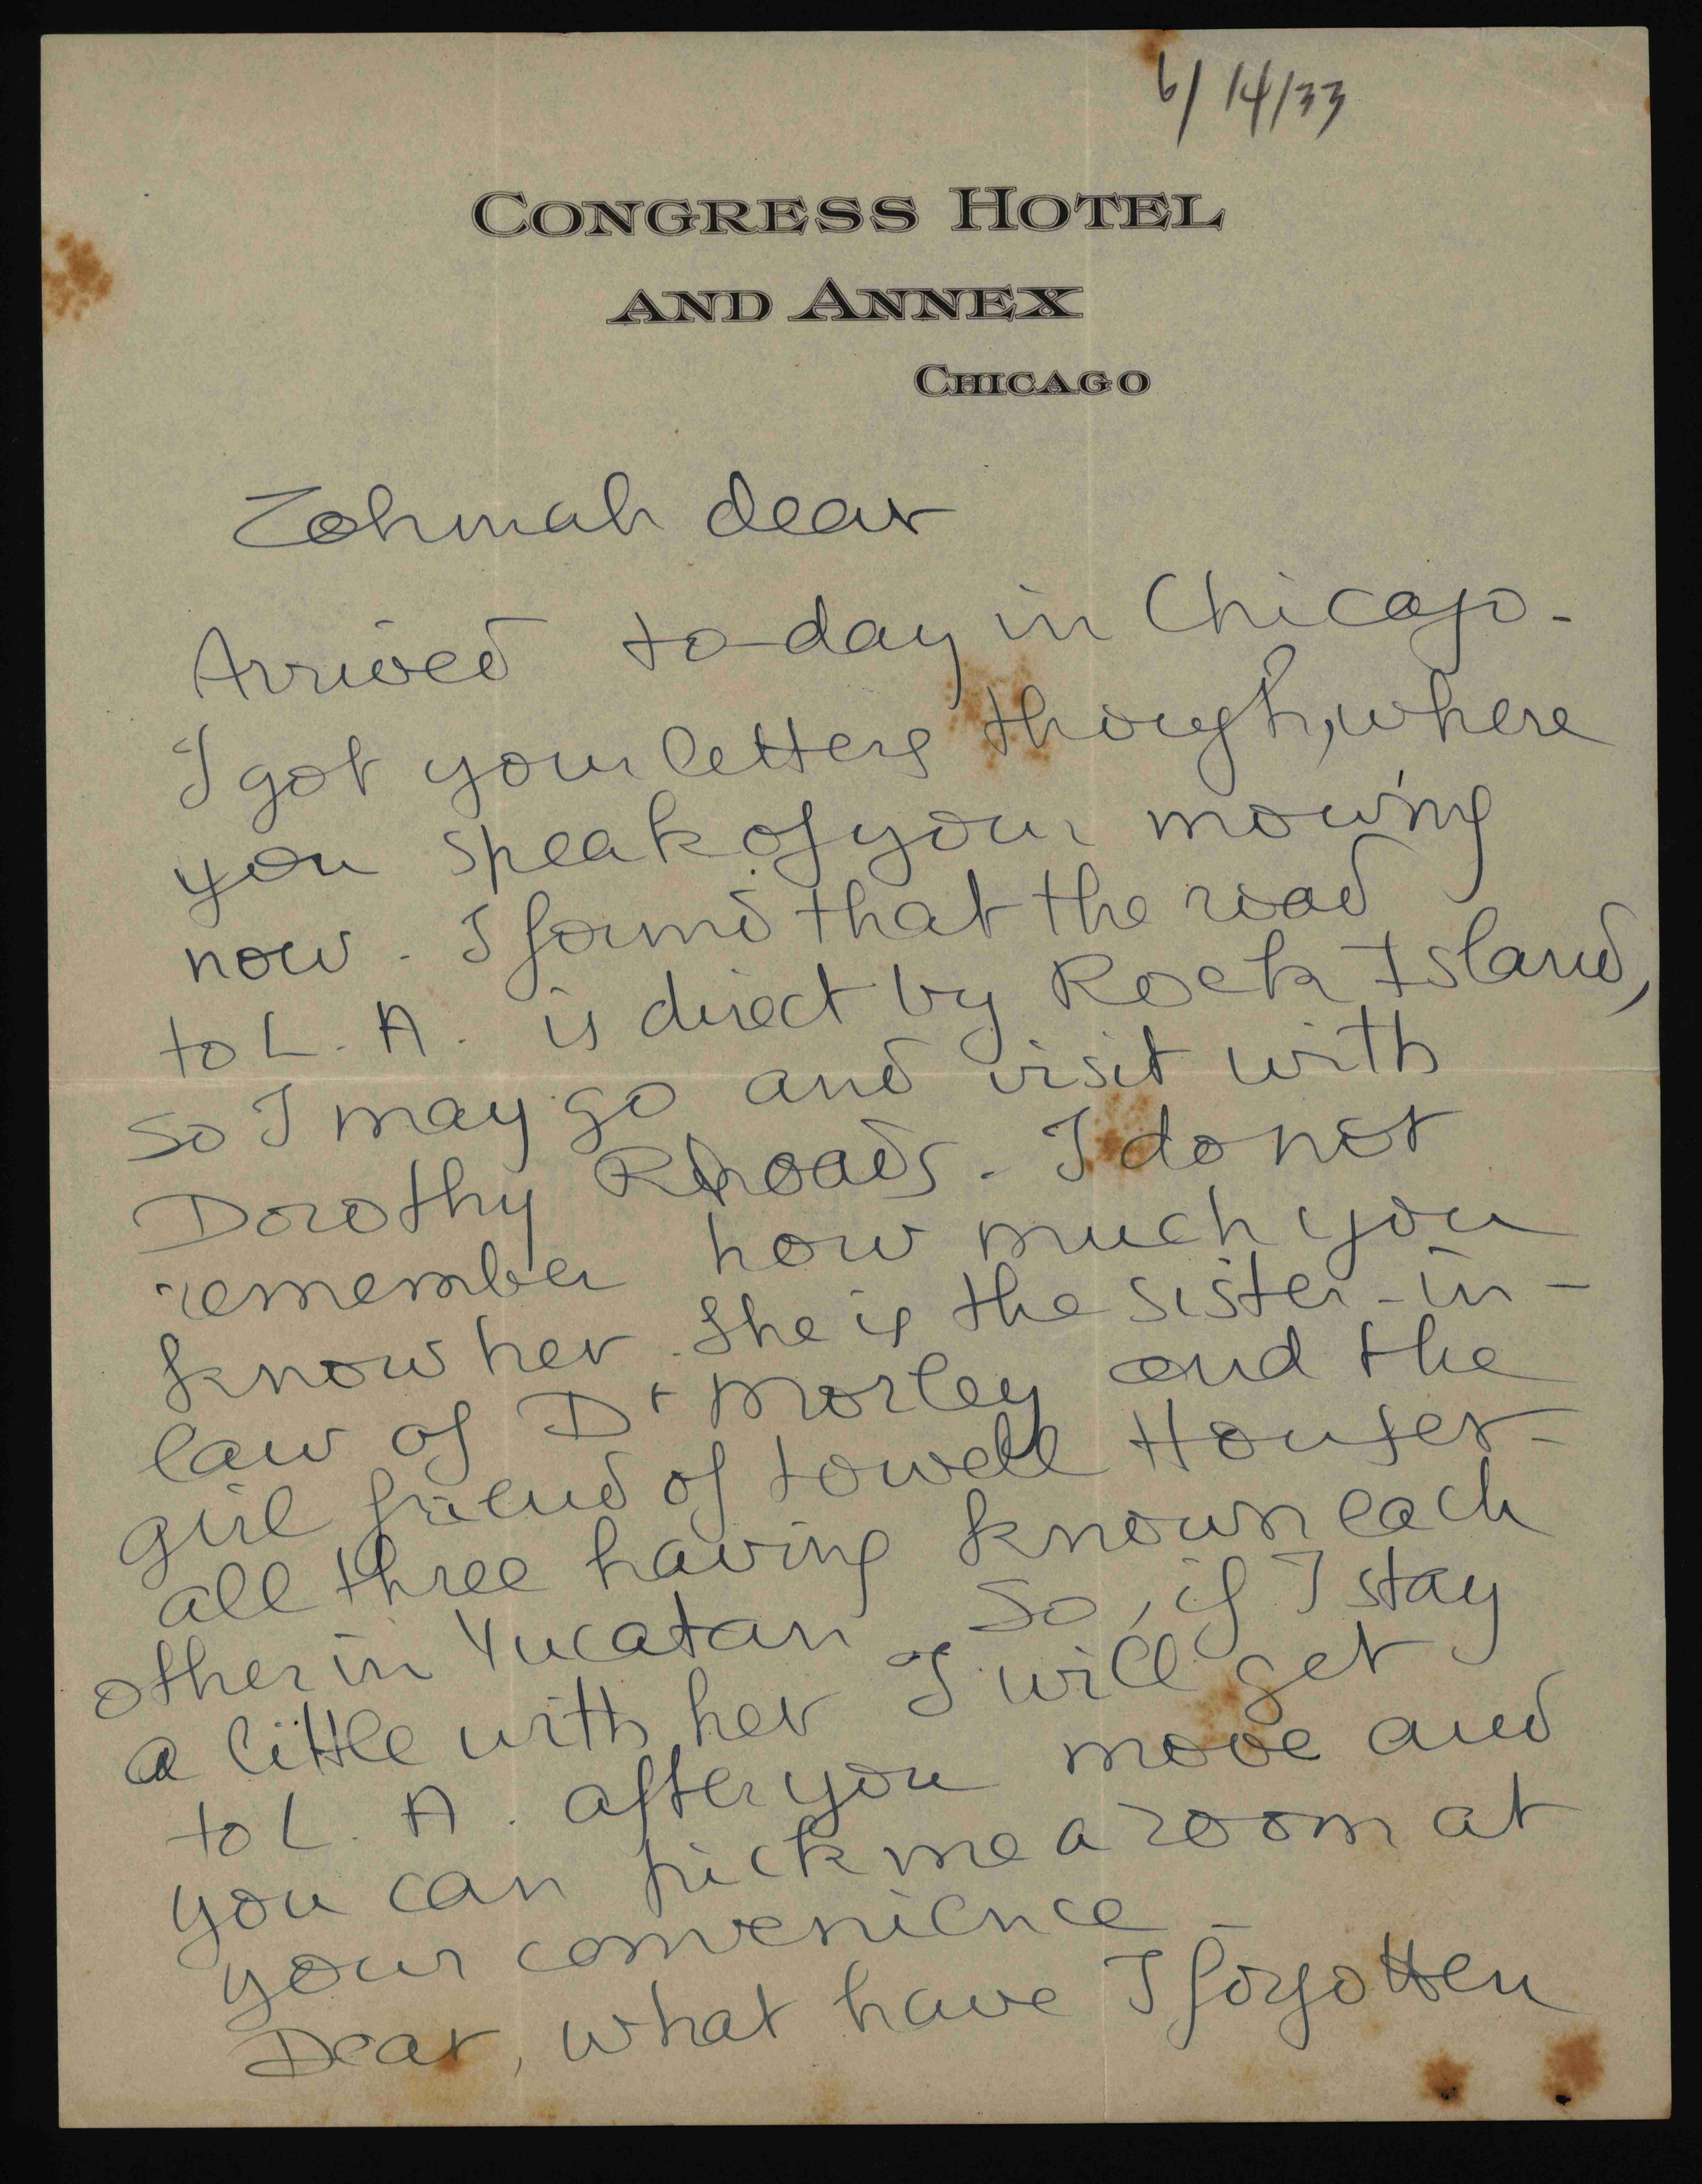 6/14/33
CONGRESS HOTEL
AND ANNEX
CHICAGO
Zohmah dear
Arrived to-day in Chicago -
I got your letters though, where
you speak of your moving
now. I found that the road
to L. A. is direct by Rock Island,
so I may go and visit with
Dorothy Rhoads. I do not
remember how much you
know her. She is the sister-in-
law of Dr Morley and the
girl friend of Lowell Houser -
all three having known each
other in Yucatan. So, if I stay
a little with her I will get
to L. A. after you move and
you can pick me a room at
your convenience -
Dear, what have I forgotten